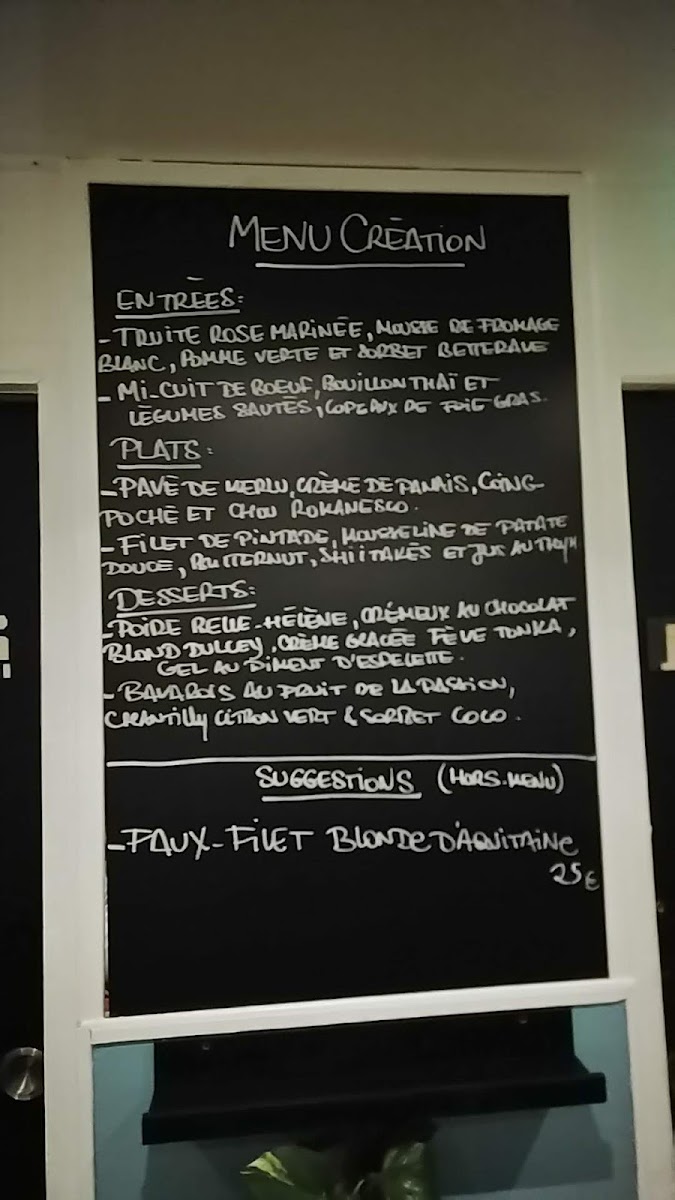 MENU CRÉATION
ENTRÉES:
- TRUITE ROSE MARINÉE, MOUSSE DE FROMAGE
BLANC, POMME VERTE ET SORBET BETTERAVE
- MI-CUIT DE BOEUF, BOUILLON THAÏ ET
LÉGUMES SAUTÉS, COPEAUX DE FOIE GRAS.
PLATS:
- PAVÉ DE MERLU, CRÈME DE PANAIS, COING
POCHÉ ET CHOU ROMANESCO.
- FILET DE PINTADE, MOUSSELINE DE PATATE
DOUCE, BUTTERNUT, SHIITAKÉS ET JUS AU THYM
DESSERTS:
- POIRE BELLE-HÉLÈNE, CRÉMEUX AU CHOCOLAT
BLOND DULCEY, CRÈME GLACÉE FÈVE TONKA,
GEL AU PIMENT D'ESPELETTE.
- BAVAROIS AU FRUIT DE LA PASSION,
CHANTILLY CITRON VERT & SORBET COCO.
SUGGESTIONS (HORS-MENU)
- FAUX-FILET BLONDE D'AQUITAINE
25€